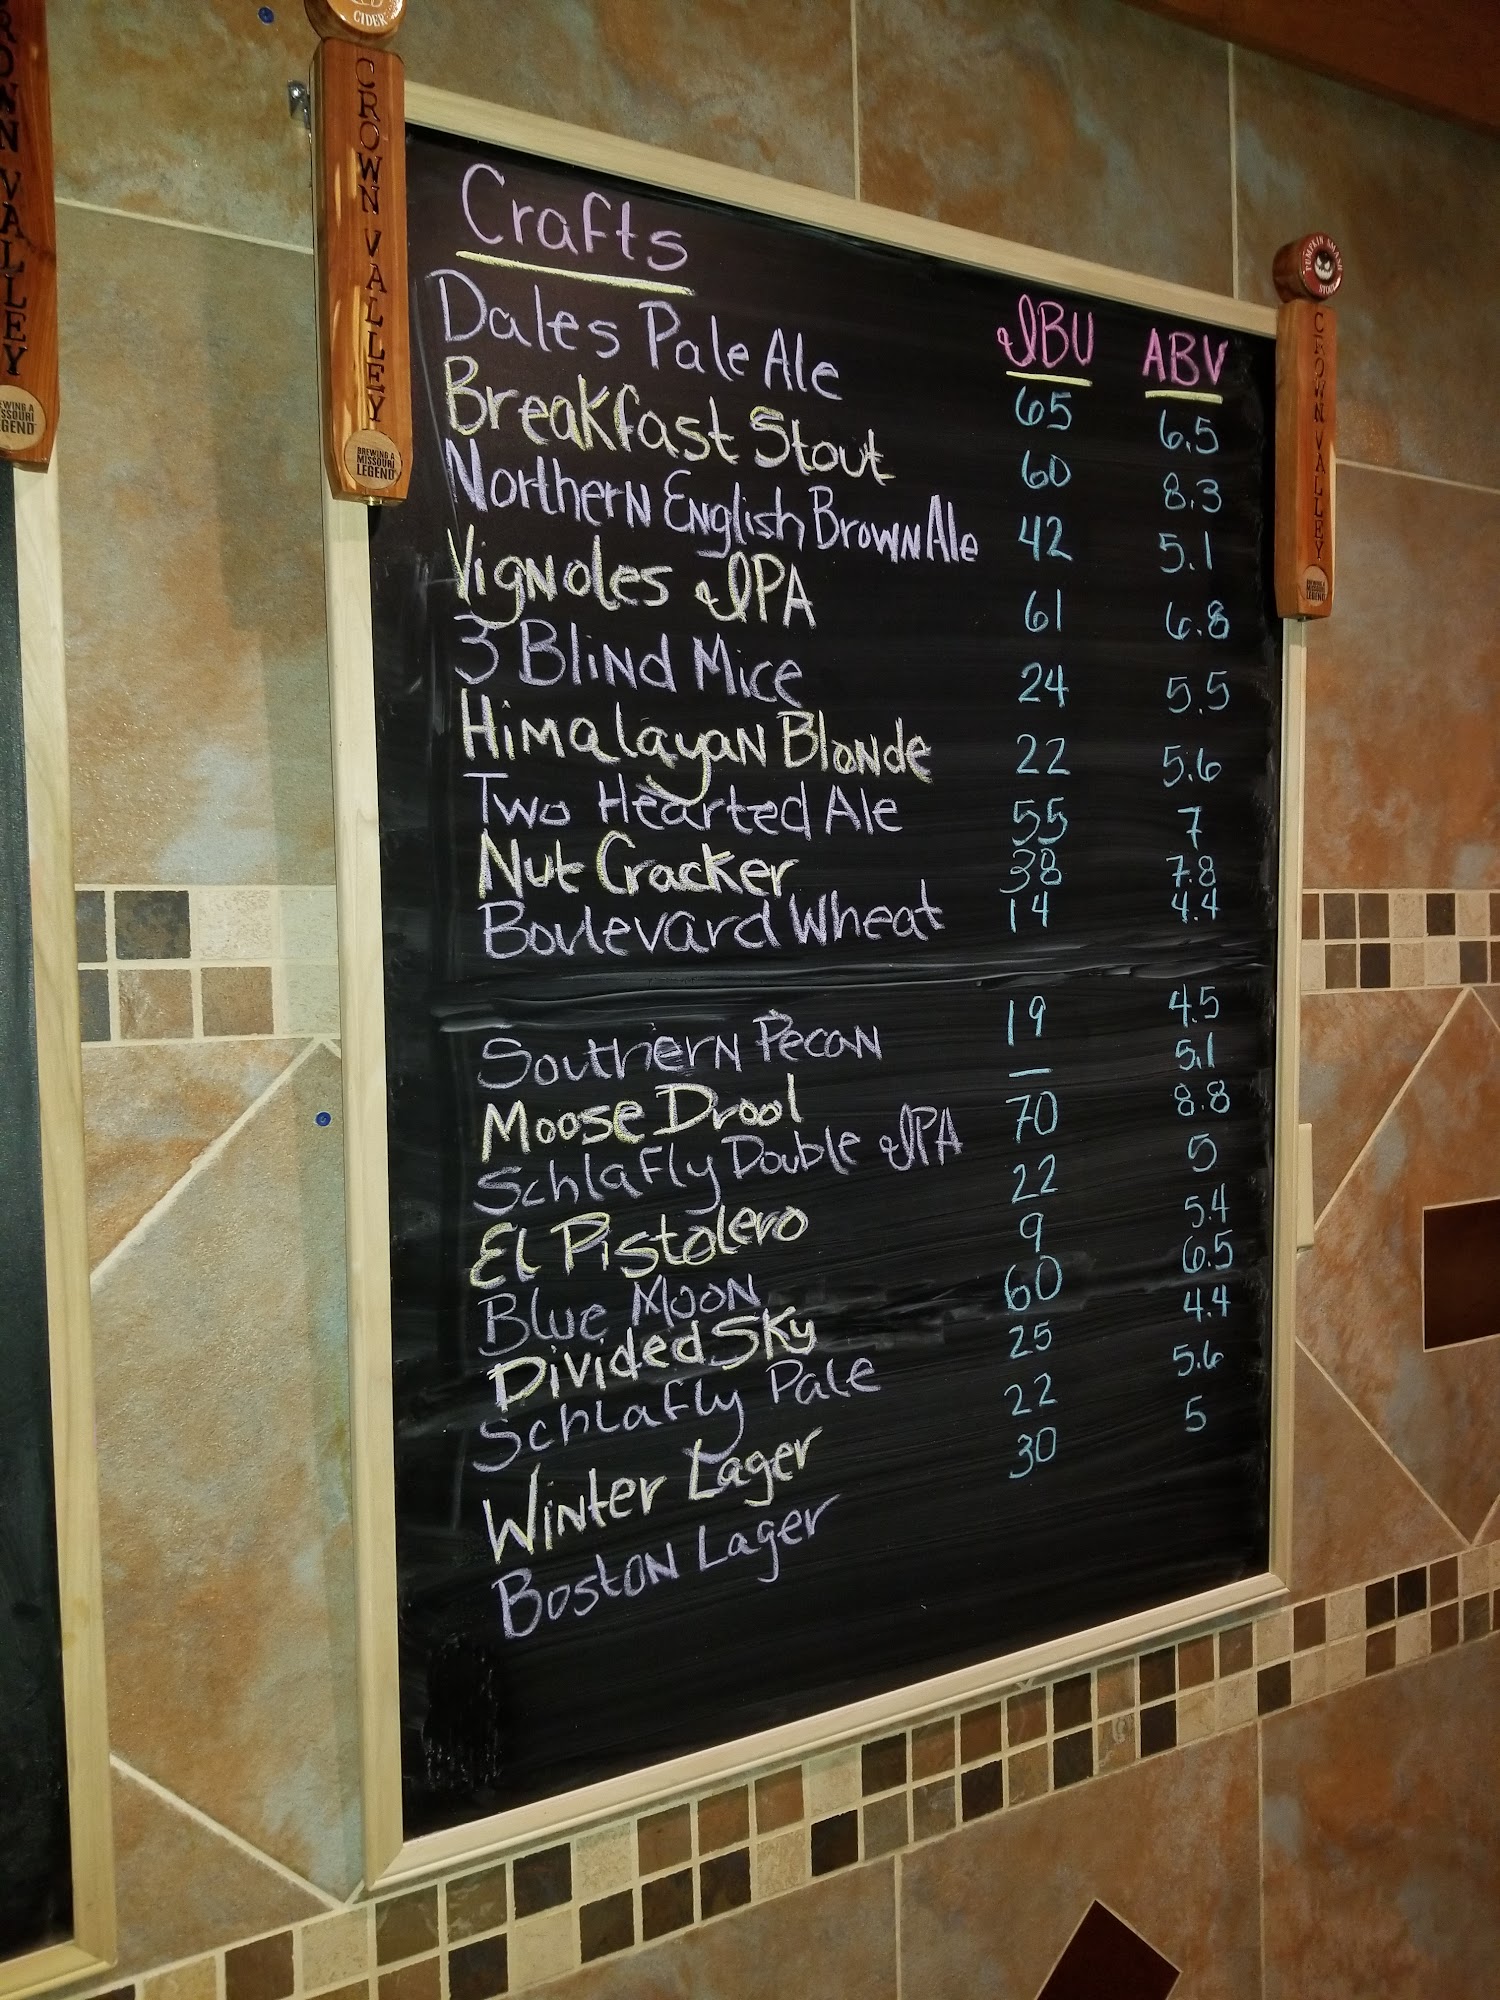 CIDER
CROWN VALLEY
BREWING A
MISSOURI
LEGEND
ROWN VALLEY
EWING A
SSOURI
EGEND
Crafts
IBU ABV
Dales Pale Ale 65 6.5
Breakfast Stout 60 8.3
Northern English Brown Ale 42 5.1
Vignoles IPA 61 6.8
3 Blind Mice 24 5.5
Himalayan Blonde 22 5.6
Two Hearted Ale 55 7
Nut Cracker 38 7.8
Boulevard Wheat 14 4.4
Southern Pecan 19 4.5
Moose Drool — 5.1
Schlafly Double IPA 70 8.8
El Pistolero 22 5
Blue Moon 9 5.4
Divided Sky 60 6.5
Schlafly Pale 25 4.4
Winter Lager 22 5.6
Boston Lager 30 5
PUMPKIN SMASH
STOUT
CROWN VALLEY
BREWING A
MISSOURI
LEGEND